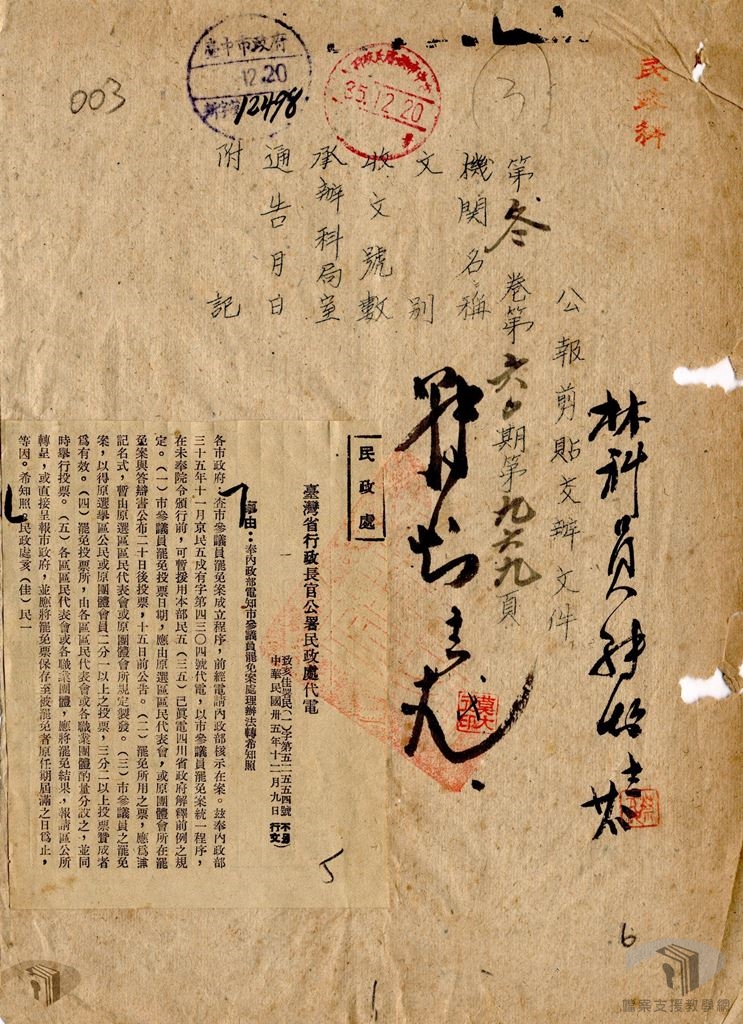 003
臺中市政府
12.20
12498.
35.12.20
3
民政科
公報剪貼交辦文件
第冬卷第六〇期第九六九頁
機關名稱
文別
收文號數
承辦科局室
通告月日
附記
林科員
民政處
臺灣省行政長官公署民政處代電
致亥佳署民(一)字第五二五五四號
中華民國卅五年十二月九日
不另行文
一
事由：奉內政部電知市參議員罷免案處理辦法轉希知照
各市政府：查市參議員罷免案成立程序，前經電請內政部核示在案。茲奉內政部
三十五年十一月京民五戍有字第四三〇四號代電，以市參議員罷免案統一程序，
在未奉院令頒行前，可暫援用本部民五(三五)已眞電四川省政府解釋前例之規
定。(一)市參議員罷免投票日期，應由原選區區民代表會，或原團體會所在罷
免案與答辯書公布二十日後投票，十五日前公告。(二)罷免所用之票，應爲無
記名式，暫由原選區區民代表會或原團體會所規定製發。(三)市參議員之罷免
案，以得原選舉區公民或原團體會員二分一以上之投票，三分二以上投票贊成者
爲有效。(四)罷免投票所，由各區區民代表會或各職業團體酌量分設之，並同
時舉行投票。(五)各區區民代表會或各職業團體，應將罷免結果，報請區公所
轉呈，或直接呈報市政府，並應將罷免票保存至被罷免者原任期屆滿之日爲止，
等因。希知照。民政處亥(佳)民一
6
檔案支援教學網